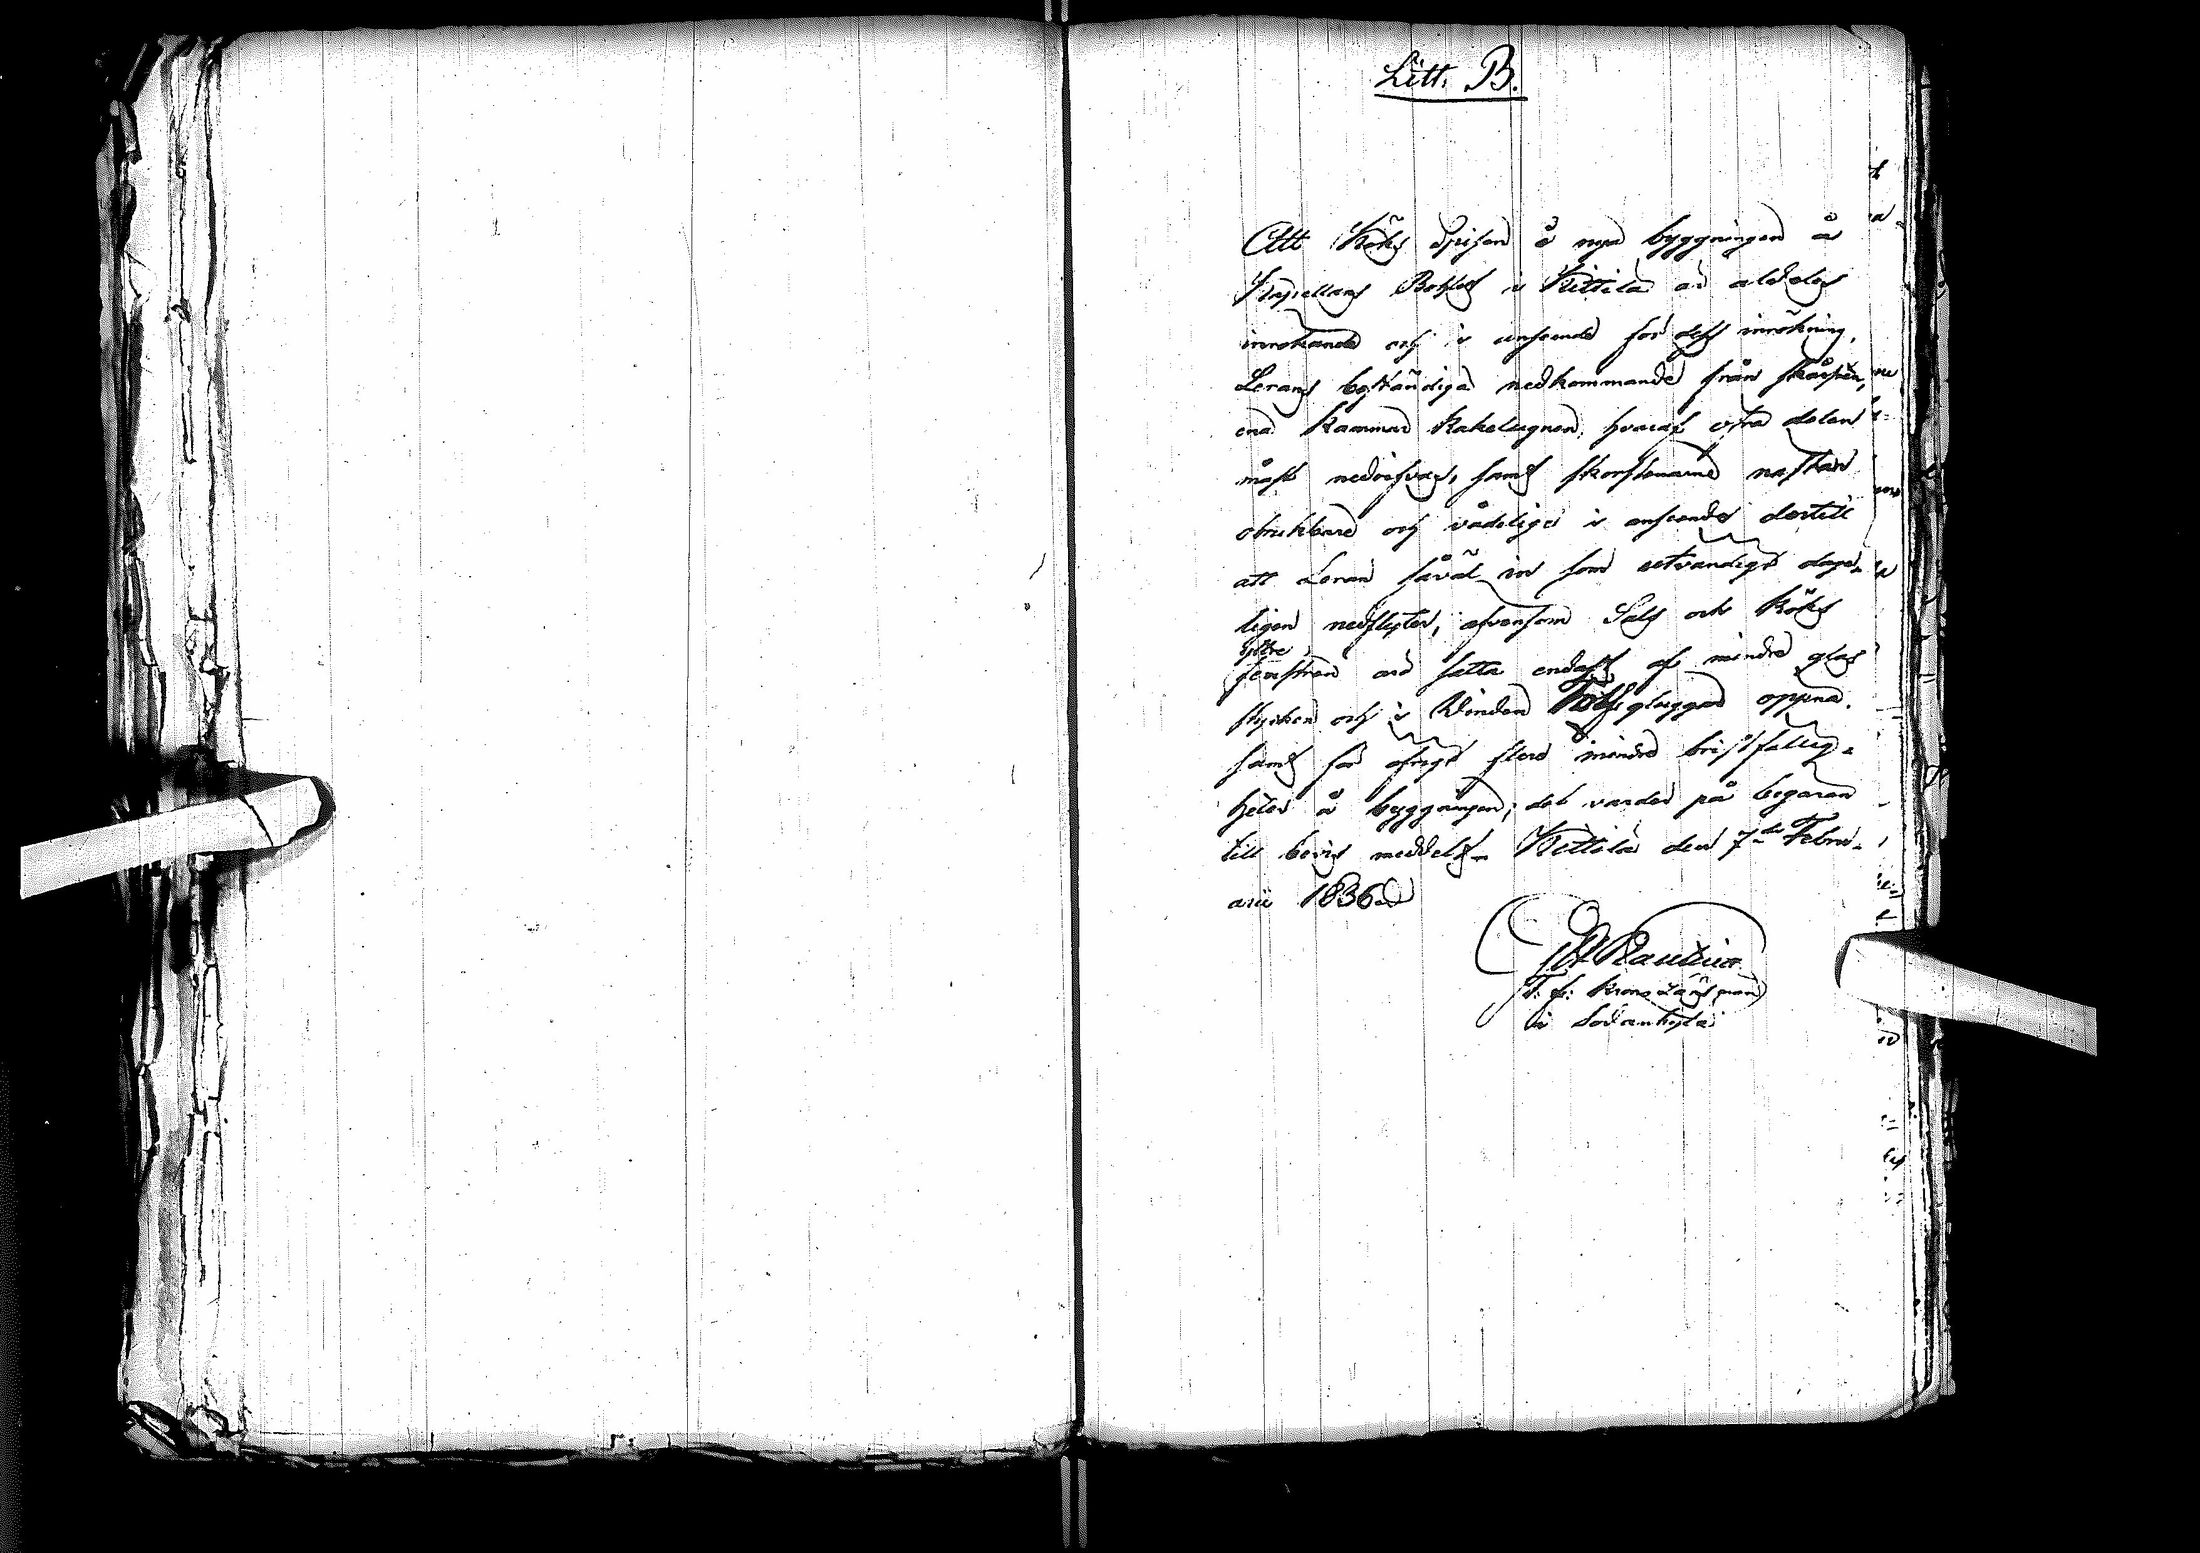 Litt. B.
Att Köks Spisen å nya byggningen å
Kapellans Bohlet i Kittilä är aldeles
inrökande och i anseende för dess inrökning,
Lerans beständiga nedkommande från
ena Kammar Kakelugnen, hvaraf öfra delen
måst nedrifvas, samt skorstenarne nästan
obrukbare och vådelige i anseende dertill
att Leran såväl in som utvändigt dage-
ligen nedflyter, äfvensom Sals och Köks
yttre
fenstren äro satta endast af mindre glas
stycken och i Vinden gluggar öppna,
samt för öfrigt flere mindre bristfällig-
heter å byggningen; det varder på begäran
till bevis meddelt. Kittilä den 7de Febru-
arii 1836.
Planting
T. f. Krono Länsman
i Sodankylä